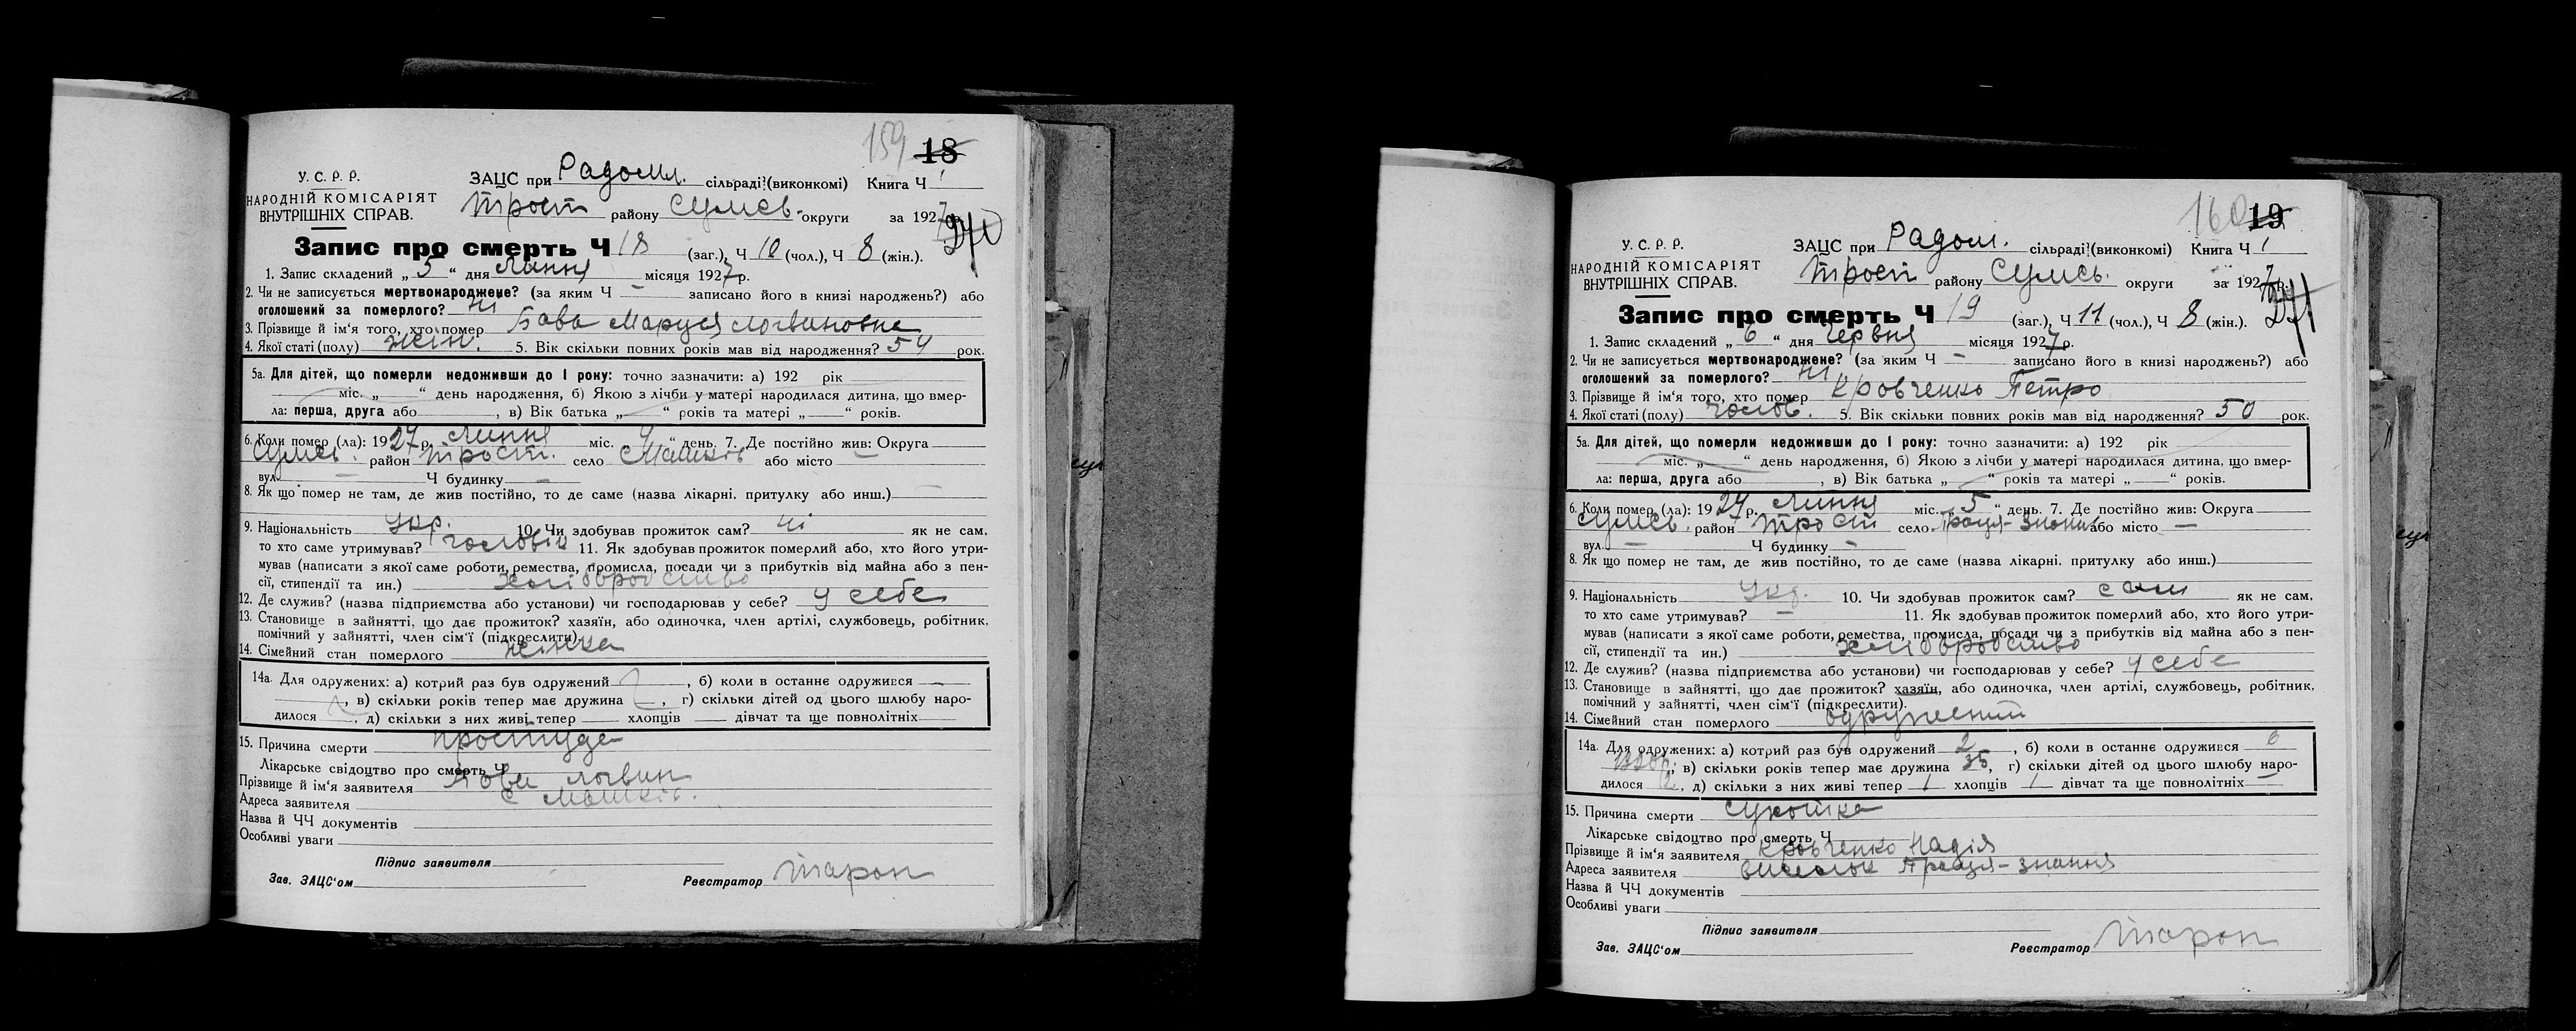 159 18
У. С. Р. Р.
НАРОДНІЙ КОМІСАРІЯТ
ВНУТРІШНІХ СПРАВ.
ЗАЦС при Радомл. сільраді (виконкомі) Книга Ч 1
Трост району Сумсь. округи за 1927 р.
270
Запис про смерть Ч 18 (заг.), Ч 10 (чол.), Ч 8 (жін.).
1. Запис складений „ 5 “ дня Липня місяця 1927 р.
2. Чи не записується мертвонароджене? (за яким Ч — записано його в книзі народжень?) або
оголошений за померлого? ні
3. Прізвище й ім'я того, хто помер Бова Маруся Логвиновна
4. Якої статі (полу) жін. 5. Вік скільки повних років мав від народження? 54 рок.
5а. Для дітей, що померли недоживши до 1 року: точно зазначити: а) 192 рік
міс. „ “ день народження, б) Якою з лічби у матері народилася дитина, що вмер-
ла: перша, друга або , в) Вік батька „ “ років та матері „ “ років.
6. Коли помер (ла): 1927 р. Липня міс. 4 “ день. 7. Де постійно жив: Округа
Сумсь. район Трост. село або місто —
вул. — Ч будинку —
8. Як що помер не там, де жив постійно, то де саме (назва лікарні. притулку або инш.) —
9. Національність Укр. 10. Чи здобував прожиток сам? ні як не сам,
то хто саме утримував? чоловік 11. Як здобував прожиток померлий або, хто його утри-
мував (написати з якої саме роботи, ремества, промисла, посади чи з прибутків від майна або з пен-
сії, стипендії та ин.) хліборобство
12. Де служив? (назва підприємства або установи) чи господарював у себе? у себе
13. Становище в зайнятті, що дає прожиток? хазяїн, або одиночка, член артілі, службовець, робітник,
помічний у зайнятті, член сім'ї (підкреслити).
14. Сімейний стан померлого жінка
14а. Для одружених: а) котрий раз був одружений , б) коли в останне одружився —
, в) скільки років тепер має дружина , г) скільки дітей од цього шлюбу наро-
дилося , д) скільки з них живі тепер хлопців дівчат та ще повнолітніх
15. Причина смерти простуда
Лікарське свідоцтво про смерть Ч
Прізвище й ім'я заявителя Бова Логвин
Адреса заявителя с
Назва й ЧЧ документів
Особливі уваги
Підпис заявителя
Зав. ЗАЦС'ом Реєстратор Таран
160 19
У. С. Р. Р.
НАРОДНІЙ КОМІСАРІЯТ
ВНУТРІШНІХ СПРАВ.
ЗАЦС при Радомл. сільраді (виконкомі) Книга Ч 1
Трост району Сумсь. округи за 1927 р.
271
Запис про смерть Ч 19 (заг.), Ч 11 (чол.), Ч 8 (жін.).
1. Запис складений „ 6 “ дня Червня місяця 1927 р.
2. Чи не записується мертвонароджене? (за яким Ч — записано його в книзі народжень?) або
оголошений за померлого? ні
3. Прізвище й ім'я того, хто помер Кровченко Петро
4. Якої статі (полу) чолов. 5. Вік скільки повних років мав від народження? 50 рок.
5а. Для дітей, що померли недоживши до 1 року: точно зазначити: а) 192 рік
міс. „ “ день народження, б) Якою з лічби у матері народилася дитина, що вмер-
ла: перша, друга або , в) Вік батька „ “ років та матері „ “ років.
6. Коли помер (ла): 1927 р. Липня міс. 5 “ день. 7. Де постійно жив: Округа
Сумсь. район Трост село Праця-Знання або місто —
вул. — Ч будинку —
8. Як що помер не там, де жив постійно, то де саме (назва лікарні. притулку або инш.)
9. Національність Укр. 10. Чи здобував прожиток сам? сам як не сам,
то хто саме утримував? — 11. Як здобував прожиток померлий або, хто його утри-
мував (написати з якої саме роботи, ремества, промисла, посади чи з прибутків від майна або з пен-
сії, стипендії та ин.) хліборобство
12. Де служив? (назва підприємства або установи) чи господарював у себе? у себе
13. Становище в зайнятті, що дає прожиток? хазяїн, або одиночка, член артілі, службовець, робітник,
помічний у зайнятті, член сім'ї (підкреслити).
14. Сімейний стан померлого одружений
14а. Для одружених: а) котрий раз був одружений 2 , б) коли в останне одружився в
, в) скільки років тепер має дружина 35, г) скільки дітей од цього шлюбу наро-
дилося 2, д) скільки з них живі тепер 1 хлопців 1 дівчат та ще повнолітніх —
15. Причина смерти сухотка
Лікарське свідоцтво про смерть Ч
Прізвище й ім'я заявителя Кровченко Надія
Адреса заявителя виселок Праця-Знання
Назва й ЧЧ документів
Особливі уваги
Підпис заявителя
Зав. ЗАЦС'ом Реєстратор Таран